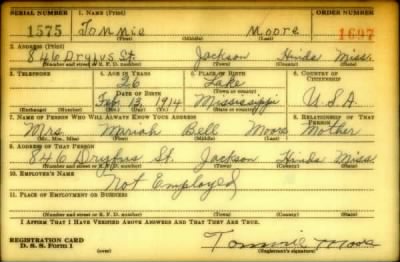 SERIAL NUMBER 1. NAME (Print) ORDER NUMBER
1575 Tommie Moore 1697
(First) (Middle) (Last)
2. ADDRESS (Print)
846 Dryfus St. Jackson Hinds Miss.
(Number and street or R. F. D. number) (Town) (County) (State)
3. TELEPHONE 4. AGE IN YEARS 5. PLACE OF BIRTH 6. COUNTRY OF CITIZENSHIP
26 Lake
DATE OF BIRTH (Town or county)
Feb. 13 1914 Mississippi U.S.A.
(Exchange) (Number) (Mo.) (Day) (Yr.) (State or country)
7. NAME OF PERSON WHO WILL ALWAYS KNOW YOUR ADDRESS 8. RELATIONSHIP OF THAT PERSON
Mrs. Mariah Bell Moore Mother
(Mr., Mrs., Miss) (First) (Middle) (Last)
9. ADDRESS OF THAT PERSON
846 Dryfus St. Jackson Hinds Miss.
(Number and street or R. F. D. number) (Town) (County) (State)
10. EMPLOYER'S NAME
Not Employed
11. PLACE OF EMPLOYMENT OR BUSINESS
(Number and street or R. F. D. number) (Town) (County) (State)
I AFFIRM THAT I HAVE VERIFIED ABOVE ANSWERS AND THAT THEY ARE TRUE.
REGISTRATION CARD
D. S. S. Form 1 Tommie Moore
(Registrant's signature)